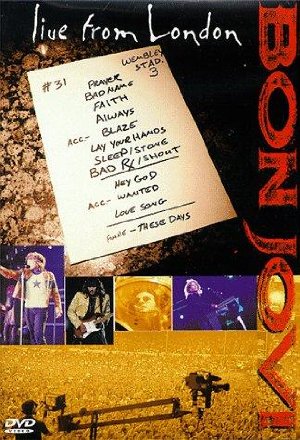 live from London
#31
WEMBLEY
STAD.
3
PRAYER
BADNAME
FAITH
ALWAYS
ACC- BLAZE
LAY YOUR HANDS
SLEEP/STONE
BAD RX/SHOUT
HEY GOD
ACC- WANTED
LOVE SONG
- THESE DAYS
BON JOVI
DVD
VIDEO